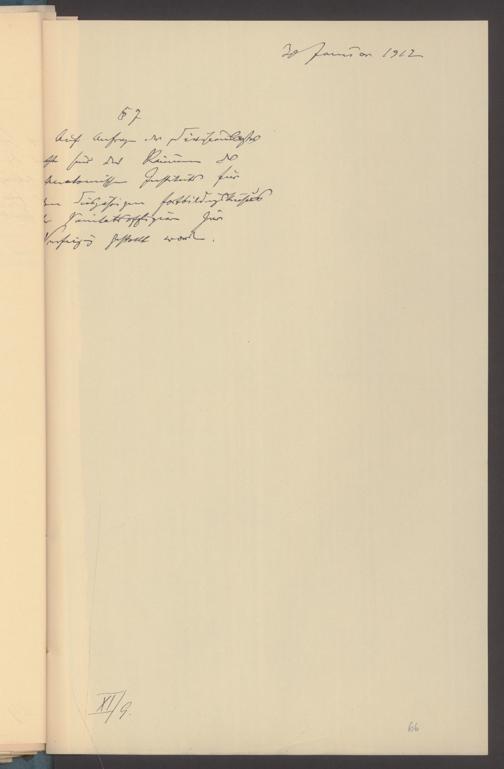 30 Januar 1912
§ 7
Auf Anfrage der
für das Räumen des
Anatomischen Instituts für
diesjährigen Fortbildungskurses
Sanitätsoffiziere zur
gestellt worden.
XI/9.
66